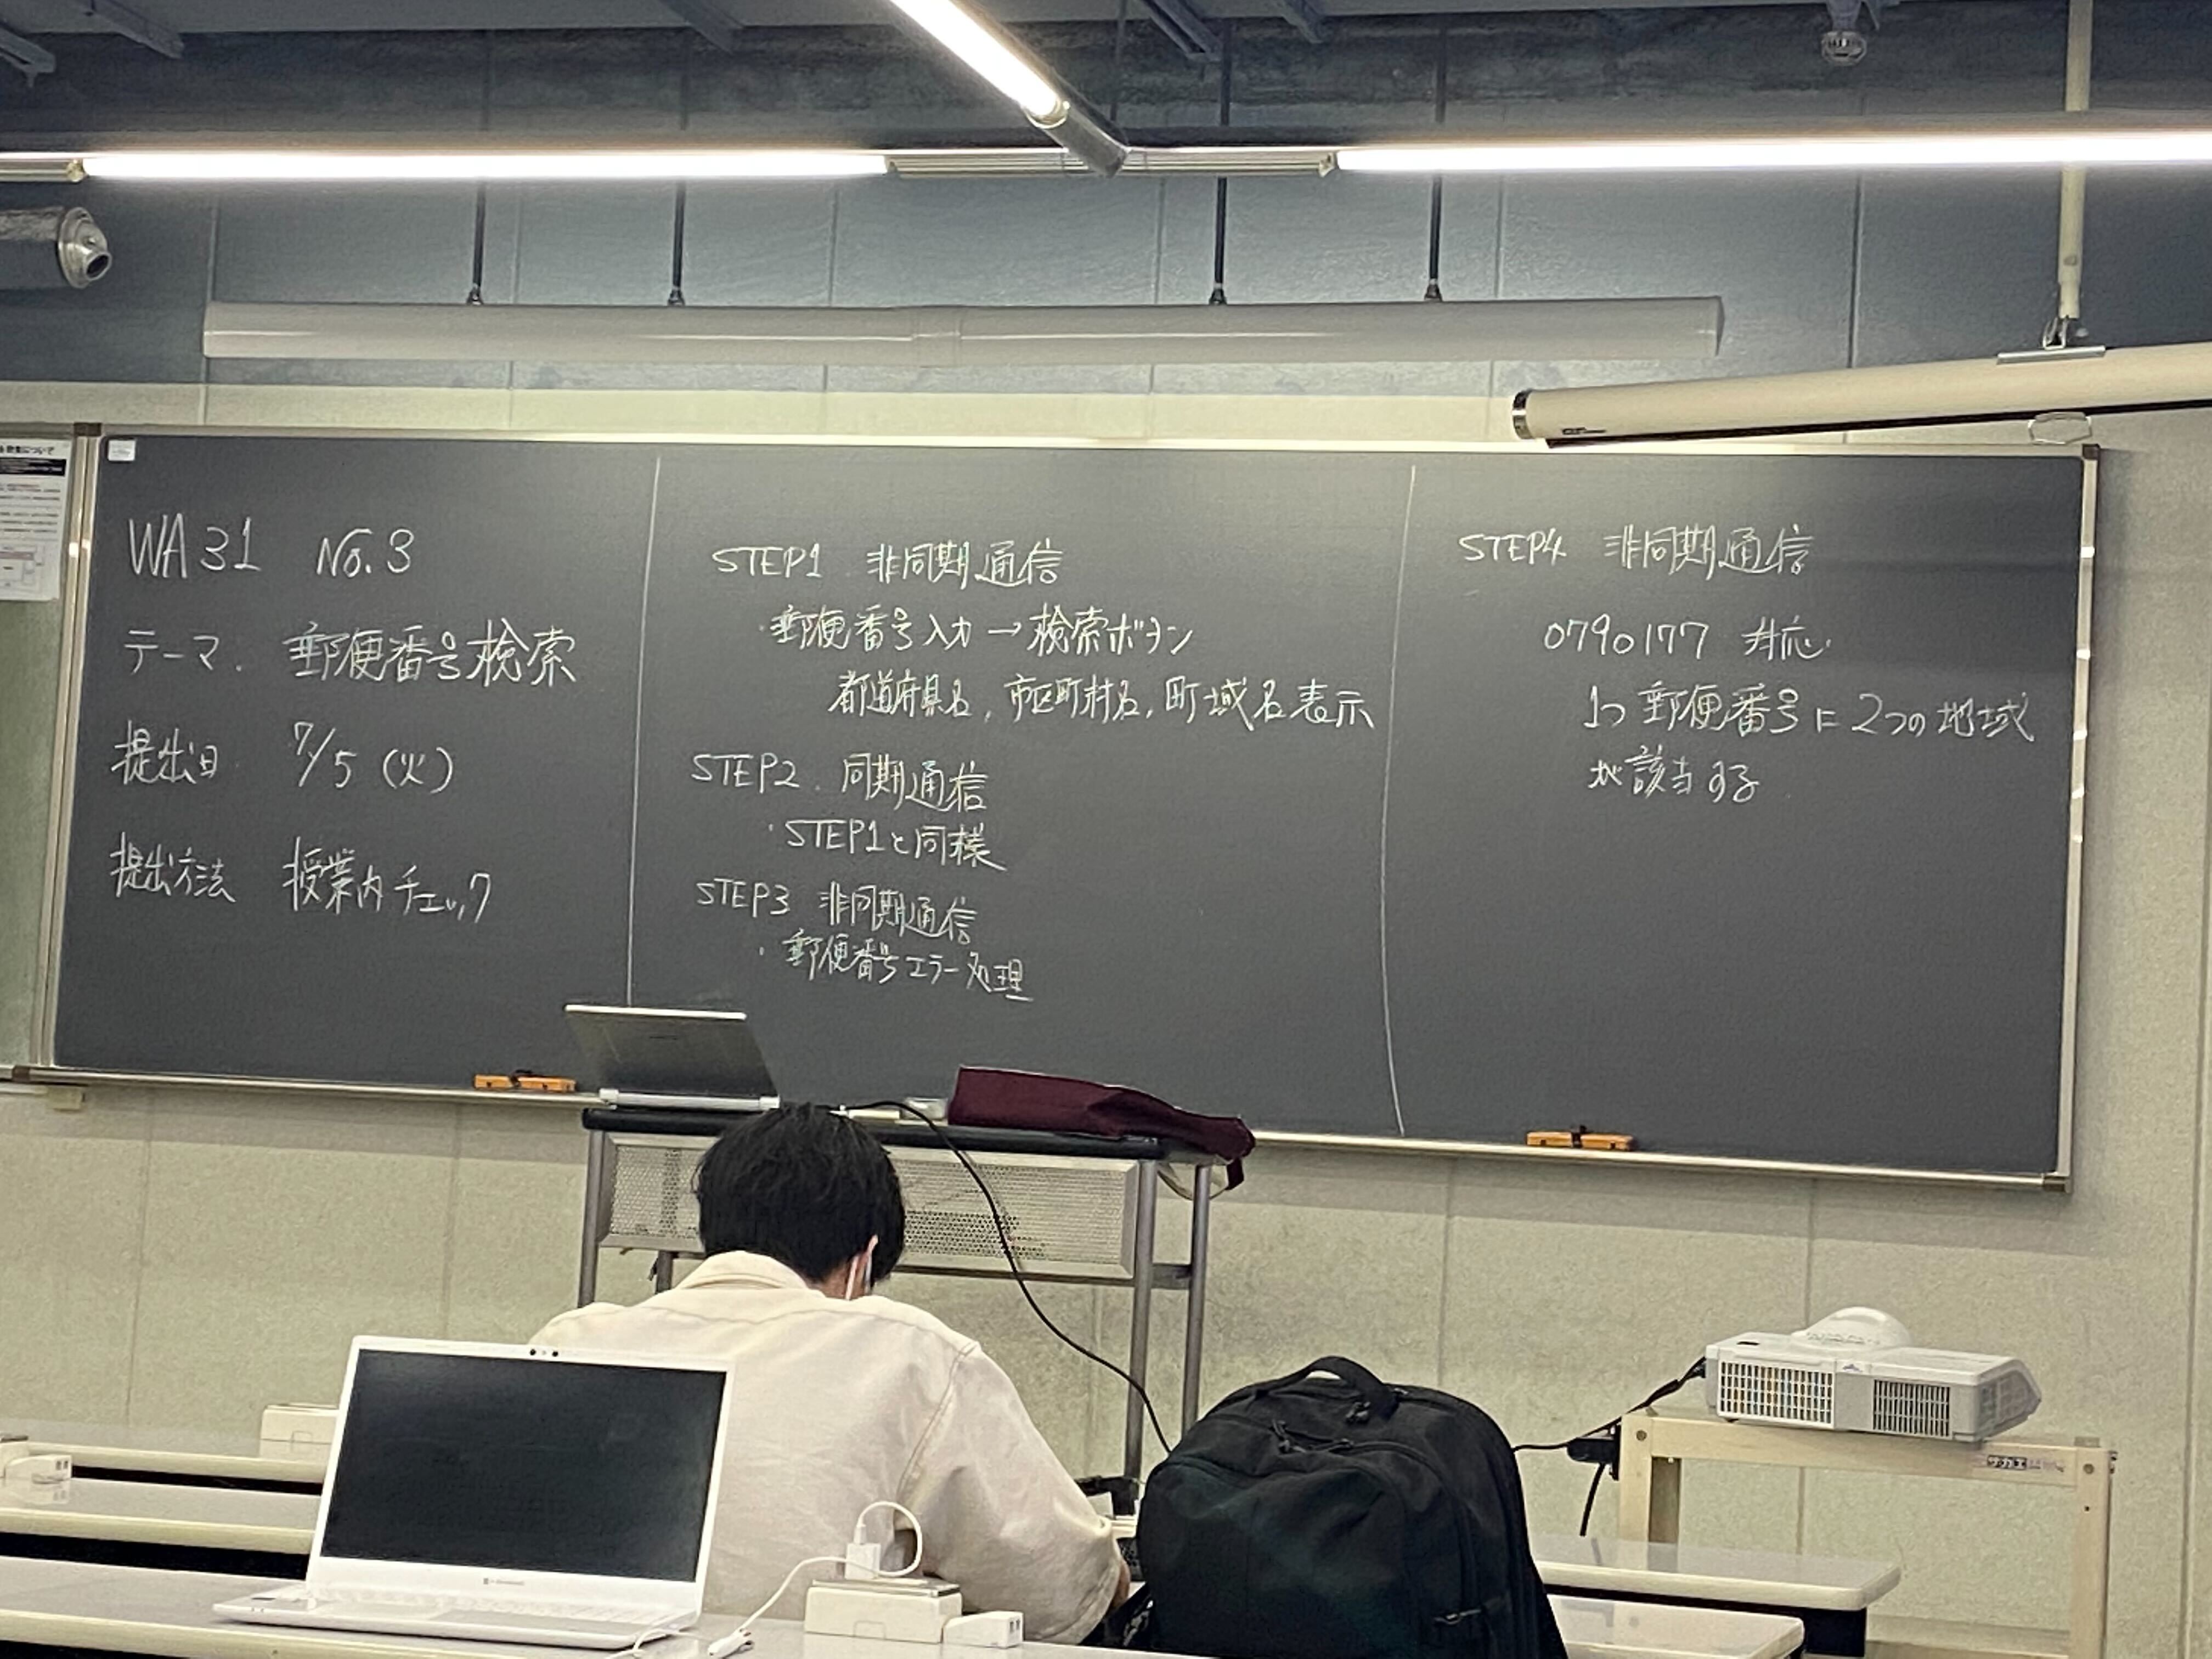 WA31 No.3
テーマ. 郵便番号検索
提出日 7/5 (火)
提出方法 授業内チェック
STEP1 非同期通信
・郵便番号入力→検索ボタン
都道府県名, 市区町村名, 町域名表示
STEP2. 同期通信
・STEP1と同様
STEP3 非同期通信
・郵便番号エラー処理
STEP4 非同期通信
0790177 対応
1つ郵便番号に2つの地域
が該当する